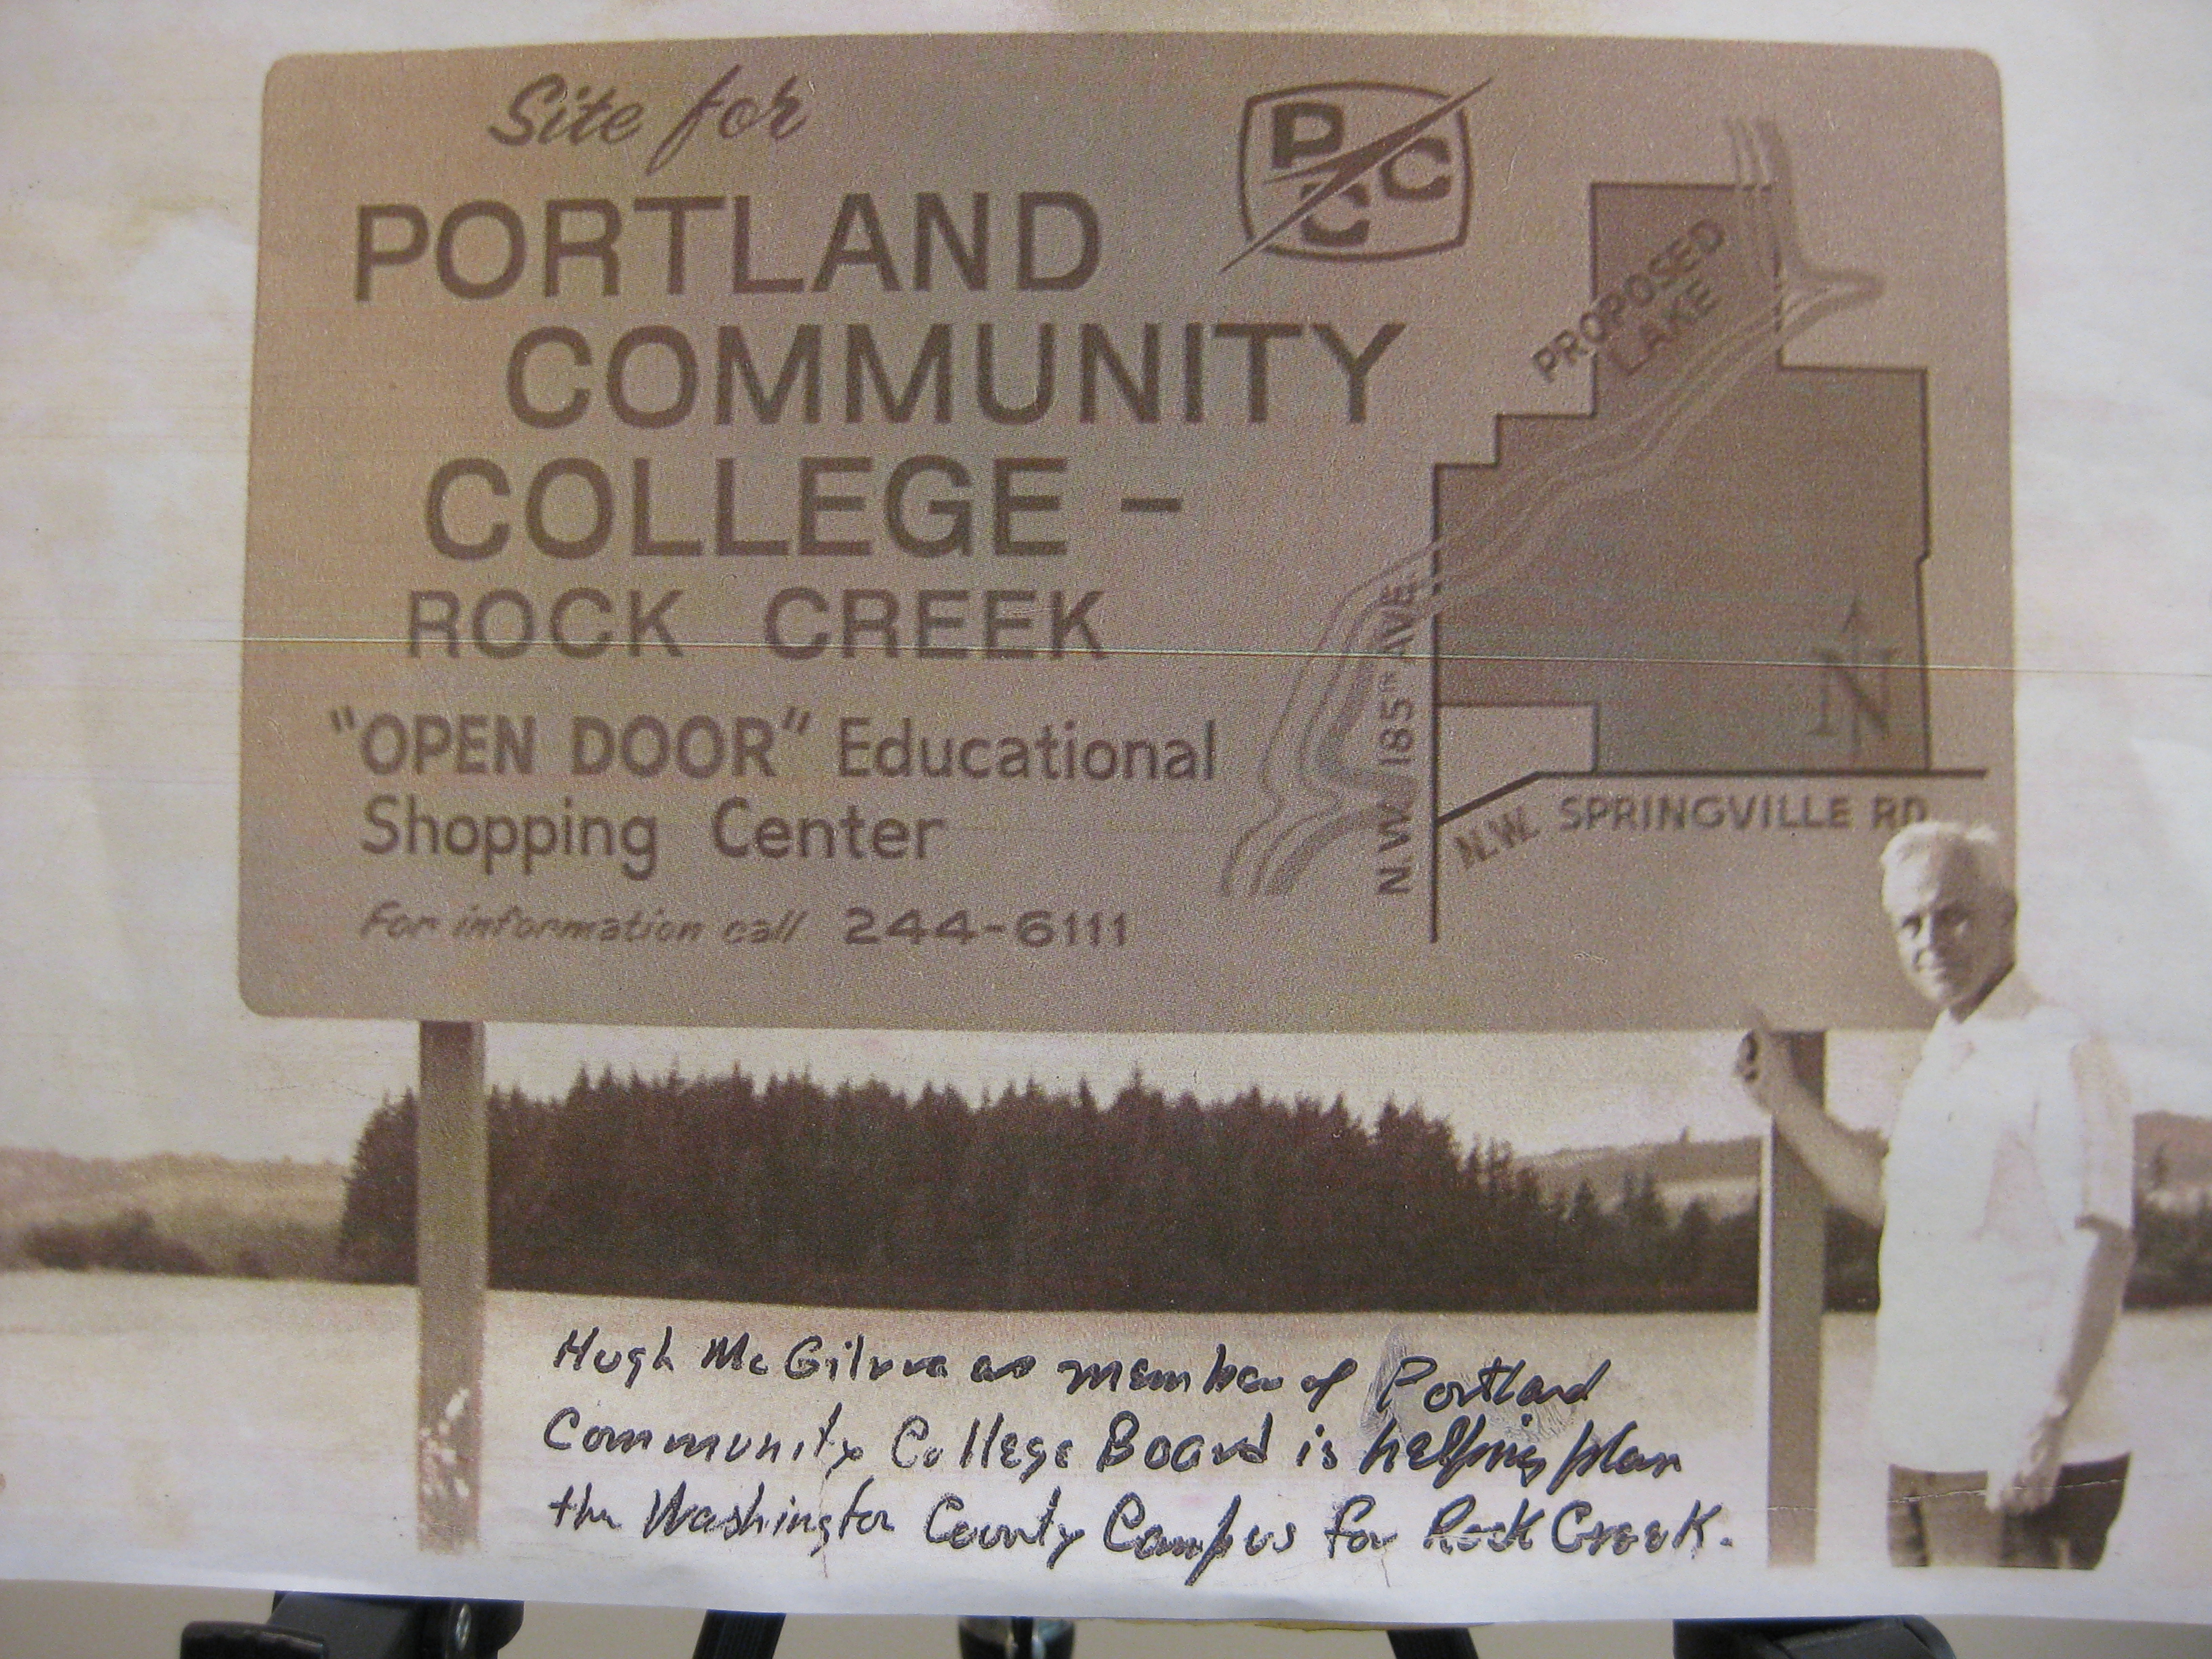 Site for
PORTLAND
COMMUNITY
COLLEGE -
ROCK CREEK
"OPEN DOOR" Educational
Shopping Center
For information call 244-6111
PCC
PROPOSED
LAKE
N.W. 185TH AVE.
N
N.W. SPRINGVILLE RD.
Hugh McGilvra as member of Portland
Community College Board is helping plan
the Washington County Campus for Rock Creek.